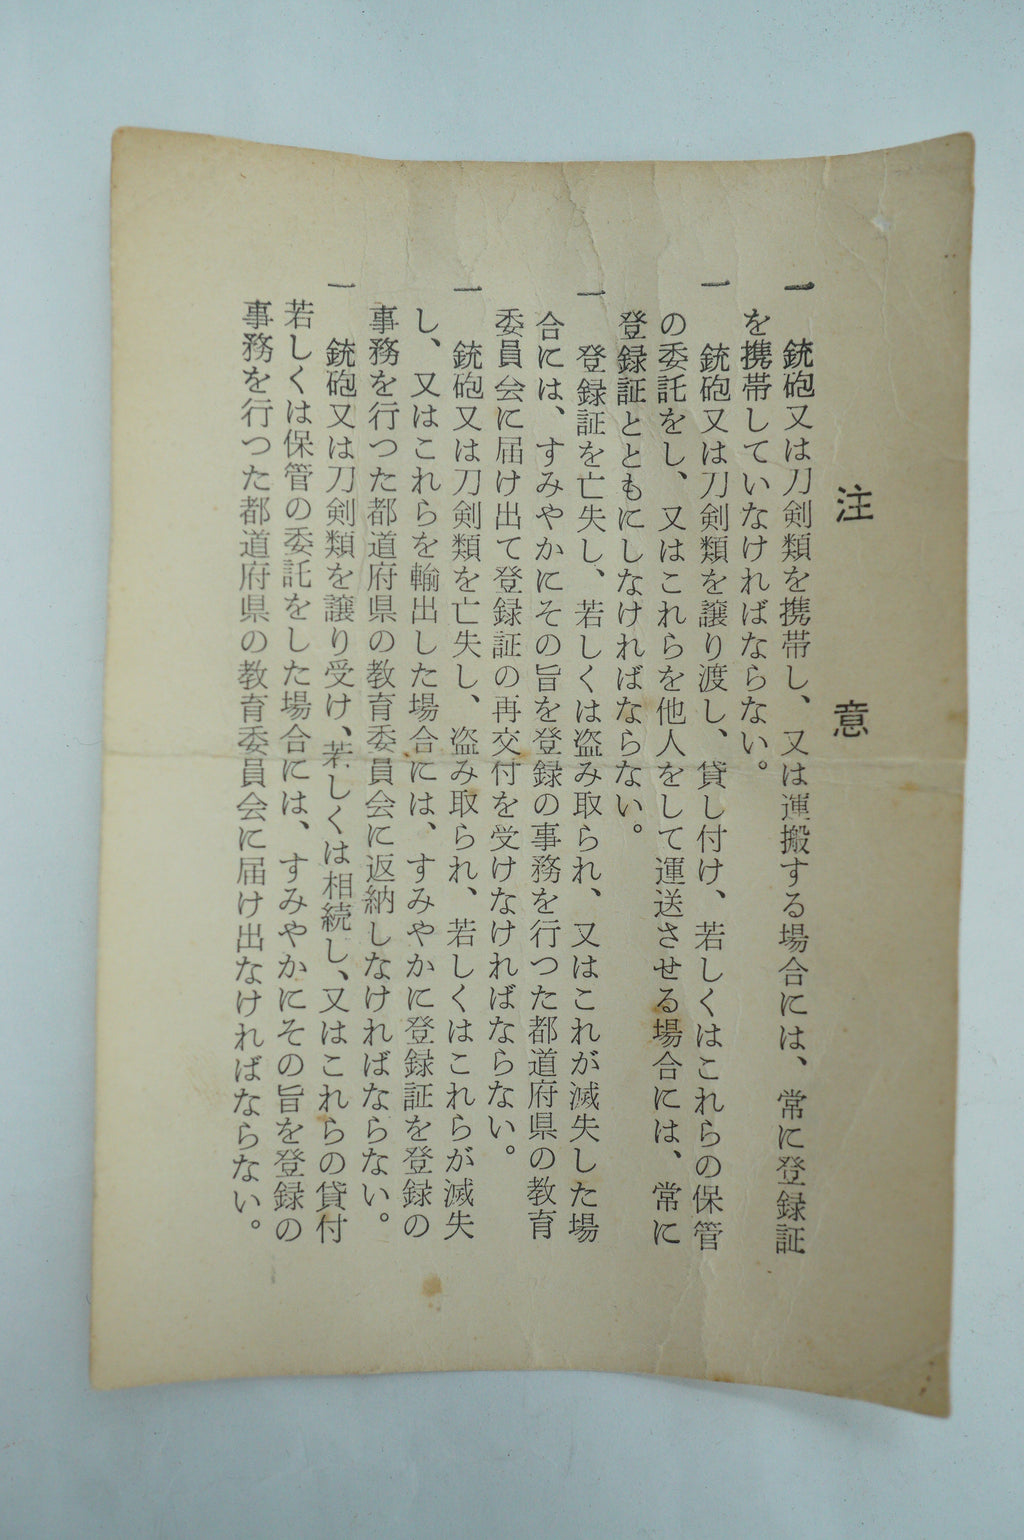 注意
一 銃砲又は刀剣類を携帯し、又は運搬する場合には、常に登録証
を携帯していなければならない。
一 銃砲又は刀剣類を譲り渡し、貸し付け、若しくはこれらの保管
の委託をし、又はこれらを他人をして運送させる場合には、常に
登録証とともにしなければならない。
一 登録証を亡失し、若しくは盗み取られ、又はこれが滅失した場
合には、すみやかにその旨を登録の事務を行つた都道府県の教育
委員会に届け出て登録証の再交付を受けなければならない。
一 銃砲又は刀剣類を亡失し、盗み取られ、若しくはこれらが滅失
し、又はこれらを輸出した場合には、すみやかに登録証を登録の
事務を行つた都道府県の教育委員会に返納しなければならない。
一 銃砲又は刀剣類を譲り受け、若しくは相続し、又はこれらの貸付
若しくは保管の委託をした場合には、すみやかにその旨を登録の
事務を行つた都道府県の教育委員会に届け出なければならない。